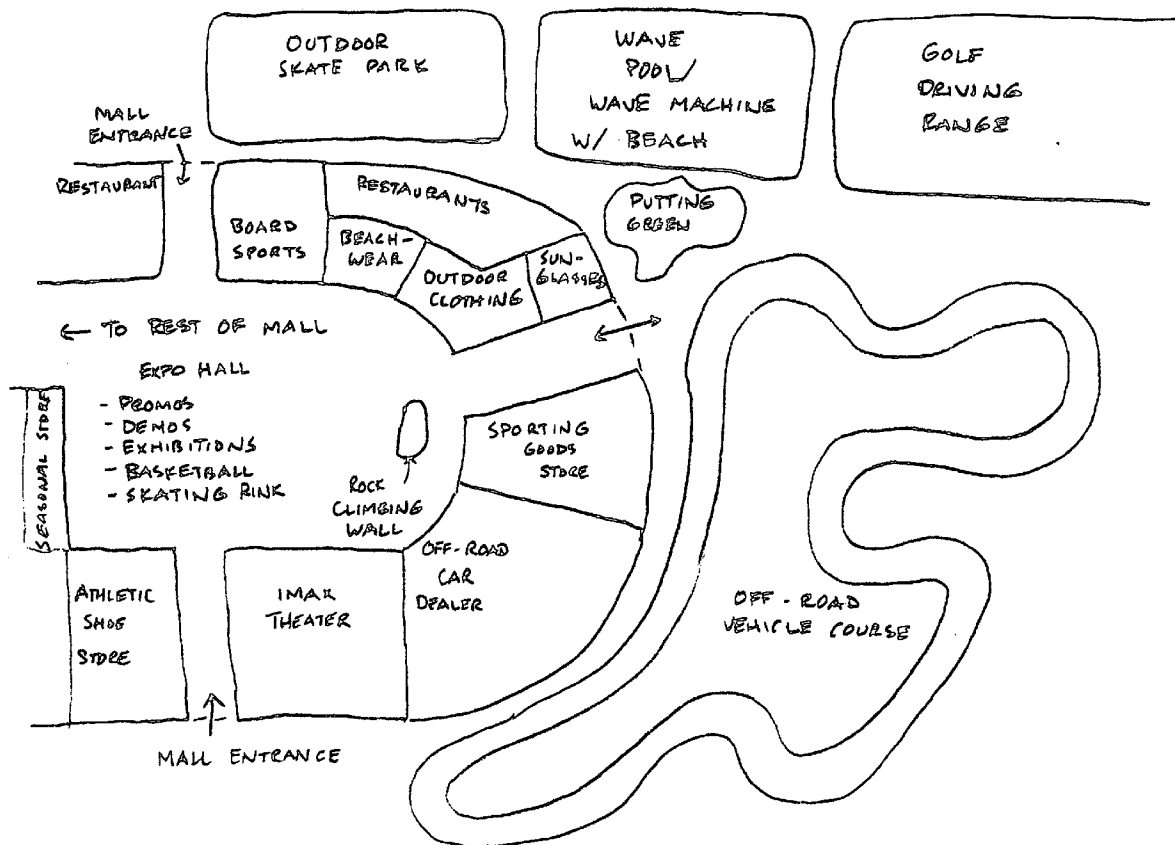 OUTDOOR
SKATE PARK
WAVE
POOL/
WAVE MACHINE
W/ BEACH
GOLF
DRIVING
RANGE
MALL
ENTRANCE
RESTAURANT
BOARD
SPORTS
RESTAURANTS
BEACH-
WEAR
OUTDOOR
CLOTHING
SUN-
GLASSES
PUTTING
GREEN
← TO REST OF MALL
EXPO HALL
- PROMOS
- DEMOS
- EXHIBITIONS
- BASKETBALL
- SKATING RINK
SEASONAL STORE
ROCK
CLIMBING
WALL
SPORTING
GOODS
STORE
OFF-ROAD
CAR
DEALER
ATHLETIC
SHOE
STORE
IMAX
THEATER
OFF-ROAD
VEHICLE COURSE
MALL ENTRANCE